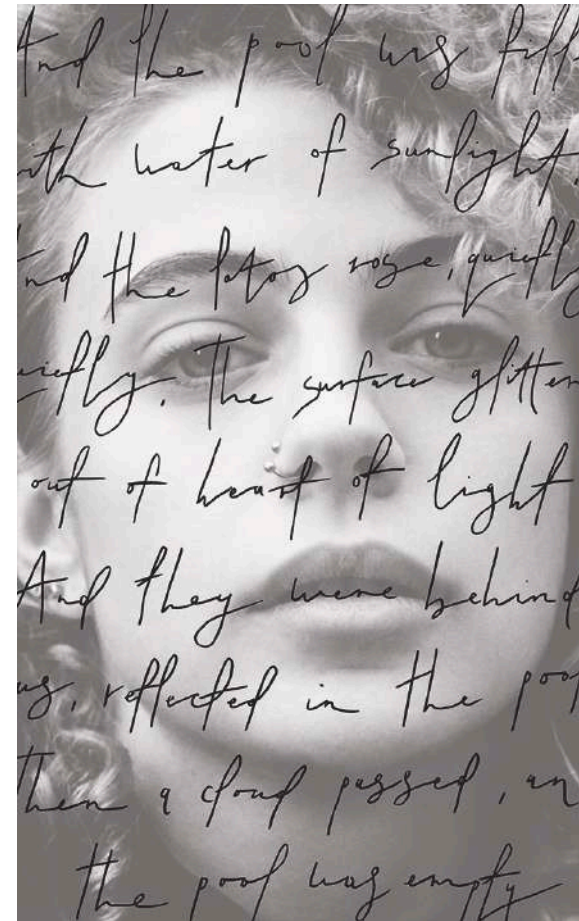 And the pool was fill
ith water of sunlight,
nd the lotos rose, quietly
uietly, The surface glitter
out of heart of light
And they were behind
us, reflected in the pool
Then a cloud passed, an
the pool was empty